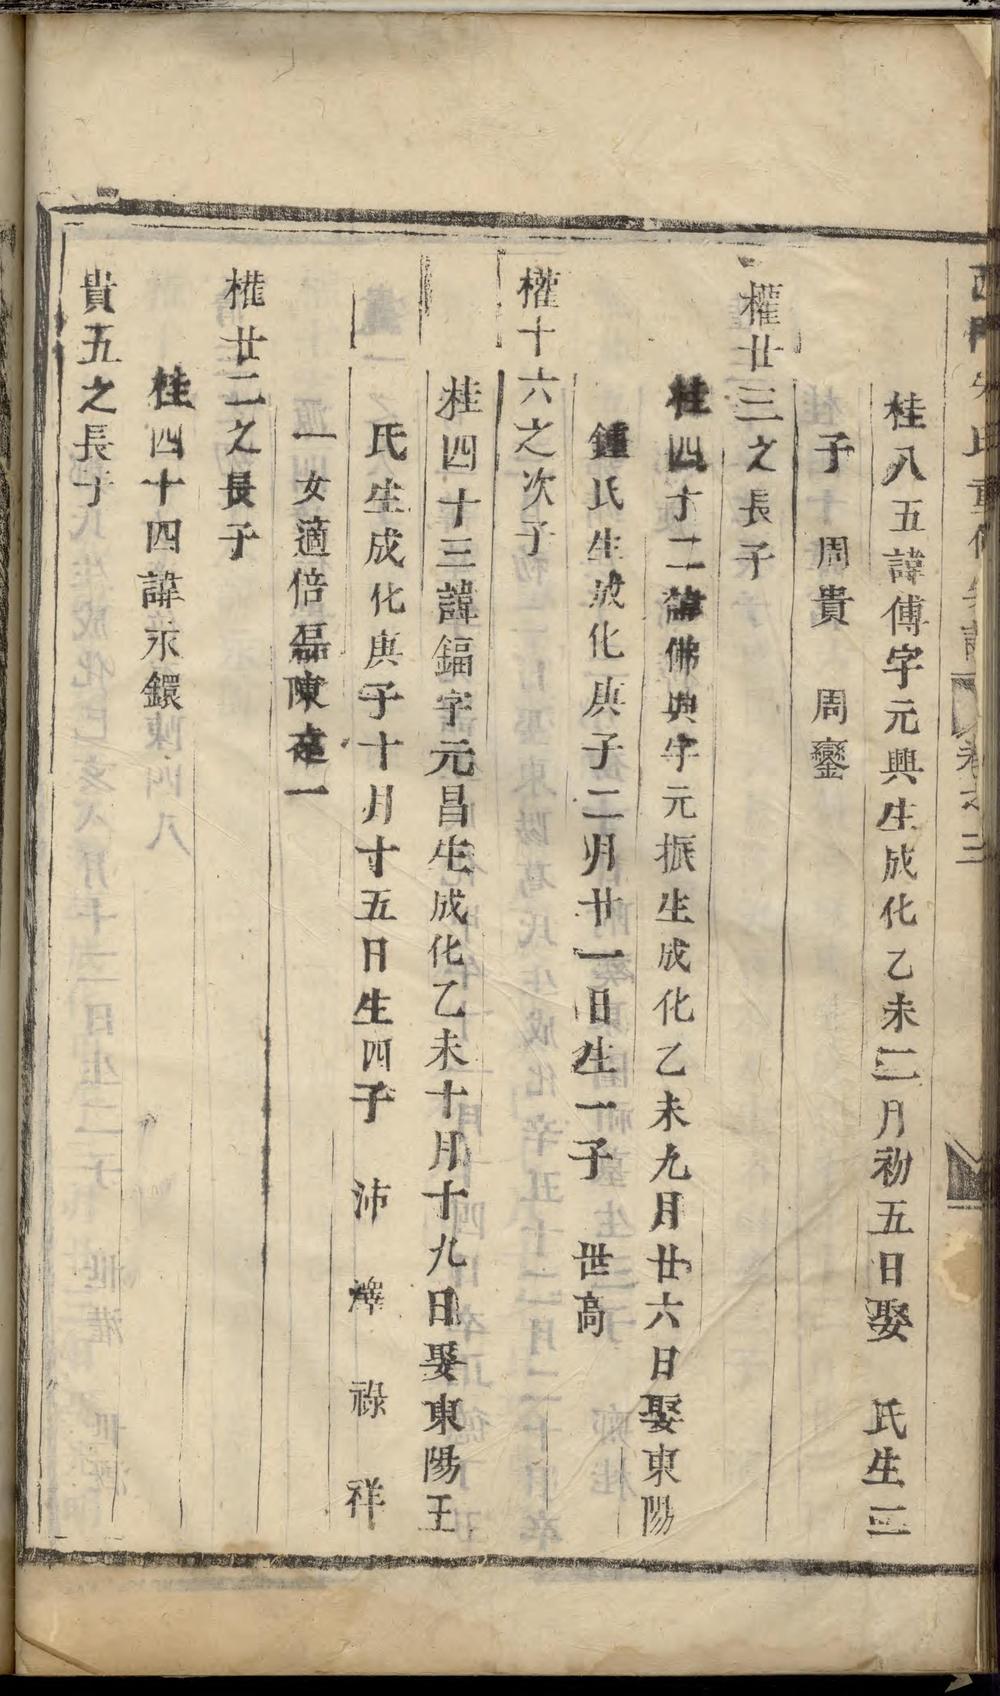 卷之三
桂八五諱傅字元興生成化乙未二月初五日娶 氏生二
子 周貴 周鑾
權廿三之長子
桂四十二諱佛興字元振生成化乙未九月廿六日娶東陽
鍾氏生成化庚子二月廿一日生一子 世高
權十六之次子
桂四十三諱鍢字元昌生成化乙未十月十九日娶東陽王
氏生成化庚子十月十五日生四子 沛 澤 祿 祥
一女適倍磊陳 一
權廿二之長子
桂四十四諱永鐶
貴五之長子